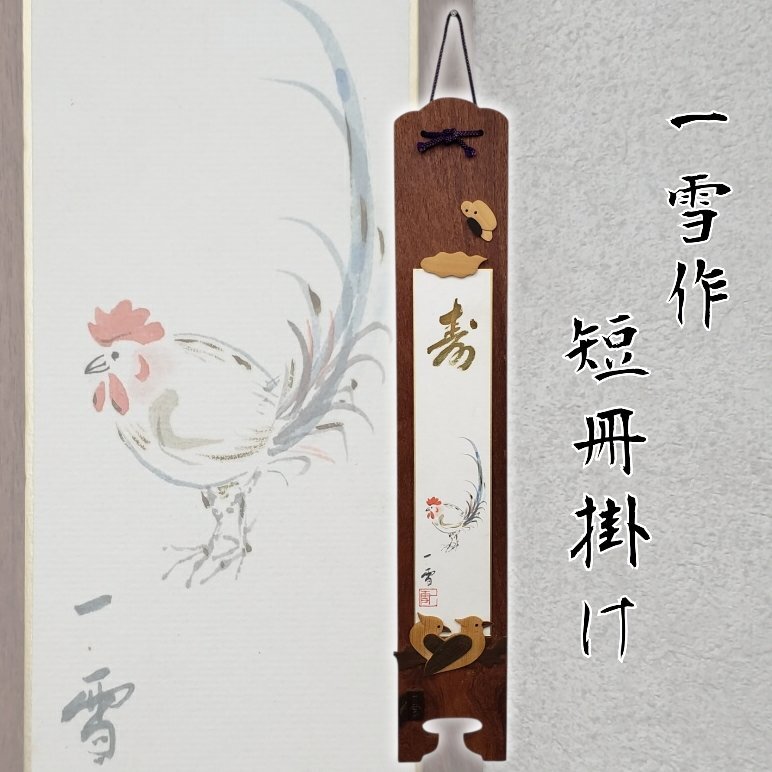 一雪作
短冊掛け
寿
一雪
一雪